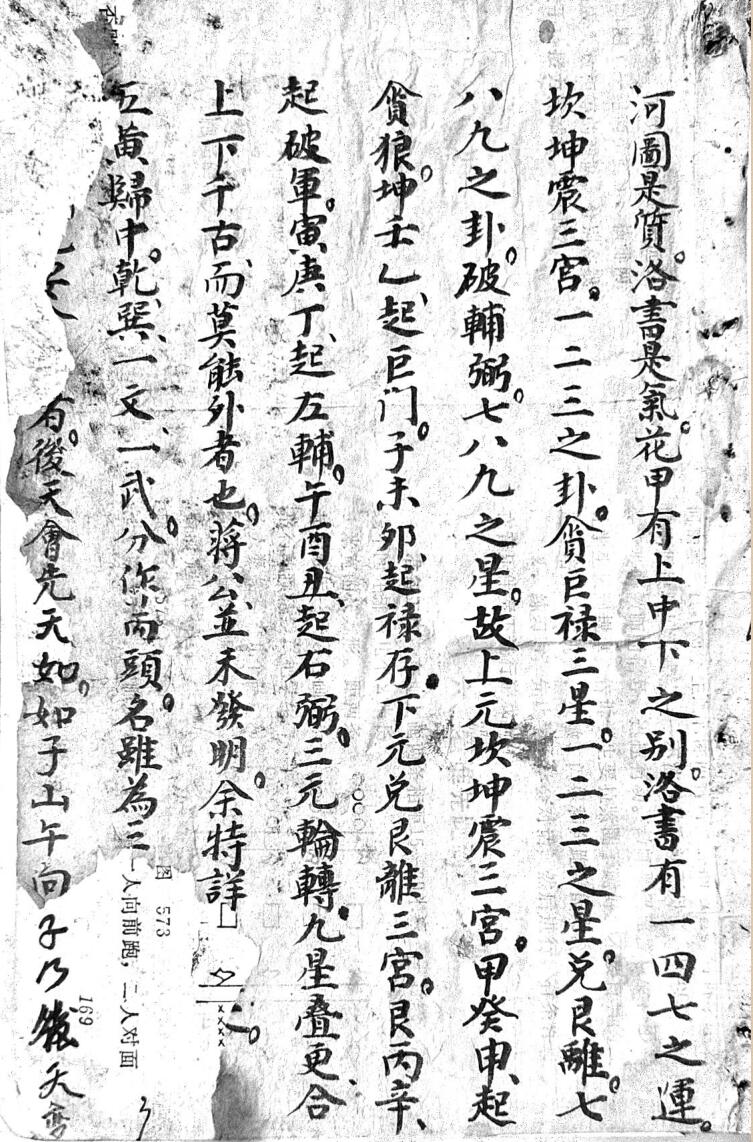 河圖是質。洛書是氣。花甲有上中下之别。洛書有一四七之運。
坎坤震三宮。一二三之卦。貪巨禄三星。一二三之星。兑艮離。七
八九之卦。破輔弼。七八九之星。故上元坎坤震三宮。甲癸申、起
貪狼。坤壬乙、起巨门。子未卯、起禄存。下元兑艮離三宮。艮丙辛、
起破軍。寅庚丁、起左輔。午酉丑、起右弼。三元輪轉。九星叠更、合
上下千古、而莫能外者也。蔣公並未發明。余特詳
五黄歸中。乾、巽、一文、一武。分作两頭。名雖為三
有。後天會先天如。如子山午向子乃
图 573
一人向前跑，二人对面
169